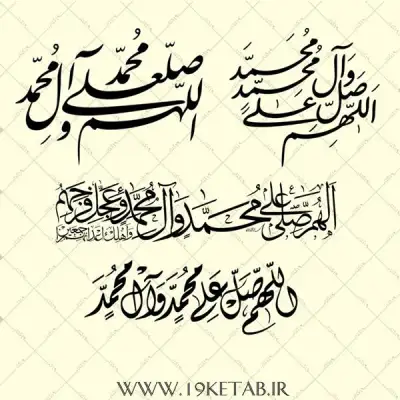 اللّهم صلّ علی محمّد وآل محمّد
اللّهم صلّ علی محمّد وآل محمّد
اللهم صلّ علی محمّد وآل محمّد وعجل فرجهم
اللّهم صلّ علی محمّد وآل محمّد
WWW.19KETAB.IR